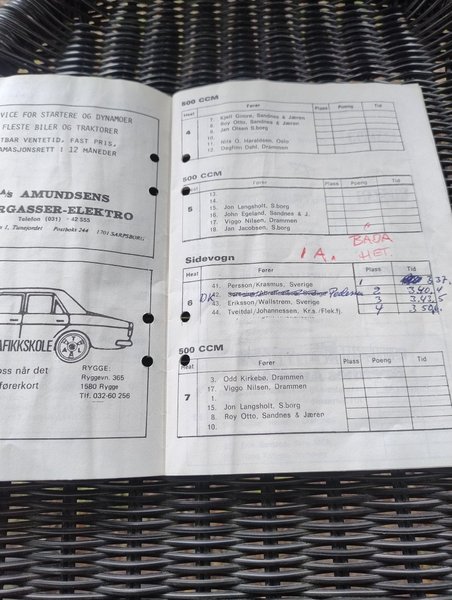 VICE FOR STARTERE OG DYNAMOER
FLESTE BILER OG TRAKTORER
TBAR VENTETID, FAST PRIS,
AMASJONSRETT I 12 MÅNEDER
As AMUNDSENS
RGASSER-ELEKTRO
Telefon (031) - 42 555
n 1, Tunejordet Postboks 244 1701 SARPSBORG
AFIKKSKOLE
oss når det
førerkort
RYGGE:
Ryggevn. 365
1580 Rygge
Tlf. 032-60 256
500 CCM
Heat Fører Plass Poeng Tid
4
7. Kjell Gimre, Sandnes & Jæren
8. Roy Otto, Sandnes & Jæren
9. Jan Olsen S.borg
11. Nils O. Haraldsen, Oslo
12. Dagfinn Dahl, Drammen
500 CCM
Heat Fører Plass Poeng Tid
5
13.
14.
15. Jon Langsholt, S.borg
16. John Egeland, Sandnes & J.
17. Viggo Nilsen, Drammen
18. Jan Jacobsen, S.borg
1 A. BAJA
HET.
Sidevogn
Heat Fører Plass Tid
6
41. Persson/Krasmus, Sverige 1 3.37.
DK 42. 2 3.40.4
43. Eriksson/Wallstrøm, Sverige 3 3.43.5
44. Tveitdal/Johannessen, Kr.s./Flek.fj. 4
500 CCM
Heat Fører Plass Poeng Tid
7
3. Odd Kirkebø, Drammen
17. Viggo Nilsen, Drammen
15. Jon Langsholt, S.borg
8. Roy Otto, Sandnes & Jæren
10.